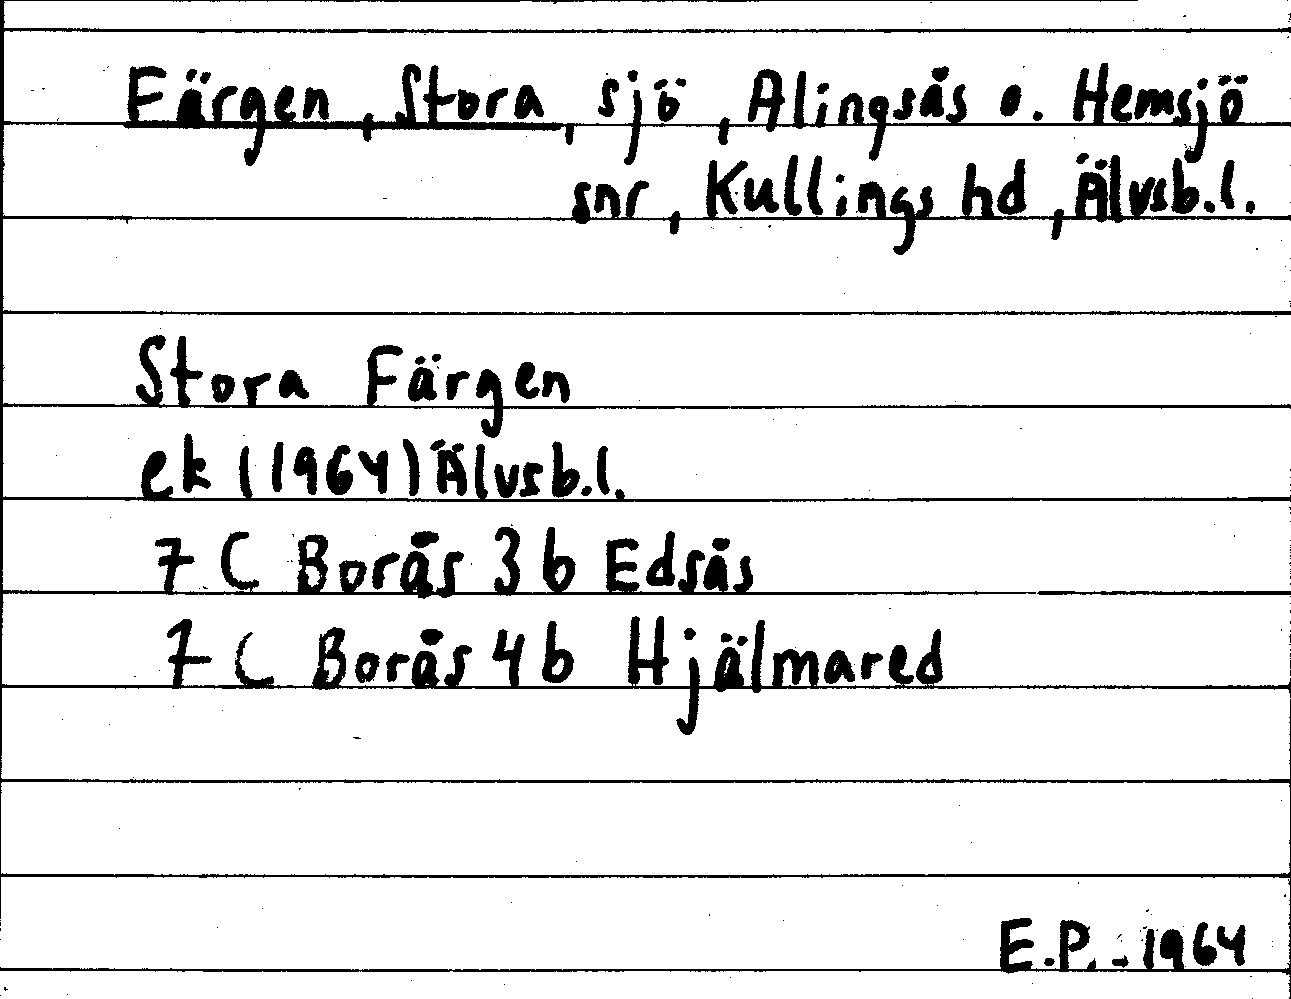 Färgen, Stora, sjö, Alingsås o. Hemsjö
snr, Kullings hd, Älvsb.l.
Stora Färgen
ek (1964) Älvsb.l.
7 C Borås 3 b Edsås
7 C Borås 4 b Hjälmared
E.P. - 1964